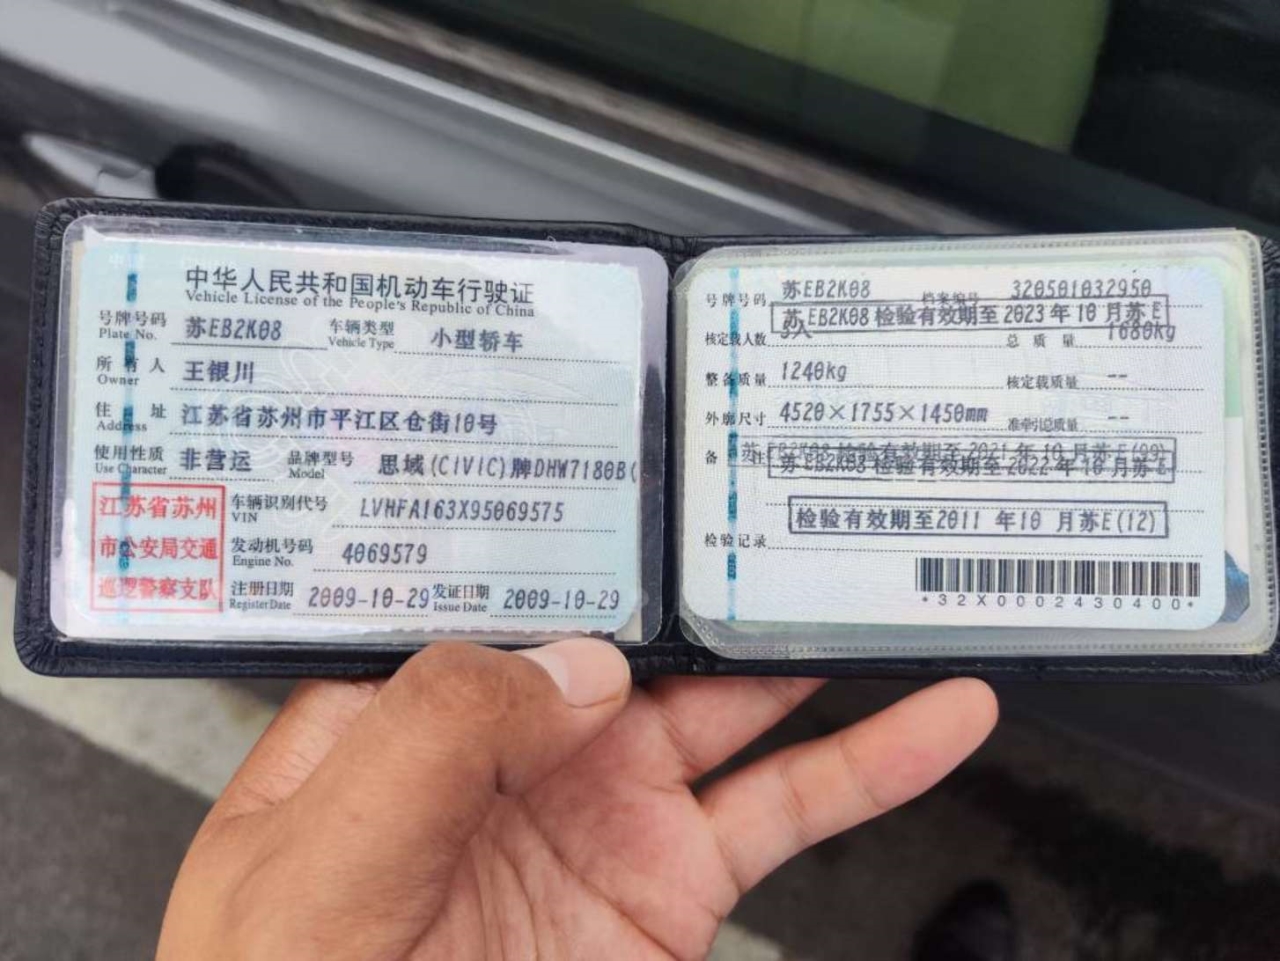 中华人民共和国机动车行驶证
Vehicle License of the People's Republic of China
号牌号码 苏EB2K08 车辆类型 小型轿车
Plate No. Vehicle Type
所有人 王银川
Owner
住址 江苏省苏州市平江区仓街10号
Address
使用性质 非营运 品牌型号 思域(CIVIC)牌DHW7180B(
Use Character Model
江苏省苏州
市公安局交通
巡逻警察支队
车辆识别代号 LVHFA163X95069575
VIN
发动机号码 4069579
Engine No.
注册日期 2009-10-29 发证日期 2009-10-29
Register Date Issue Date
号牌号码 苏EB2K08 档案编号 320501032950
苏EB2K08检验有效期至2023年10月苏E
核定载人数 5人 总质量 1680kg
整备质量 1240kg 核定载质量 --
外廓尺寸 4520×1755×1450mm 准牵引总质量 --
备注 苏EB2K08检验有效期至2021年10月苏E(99)
苏EB2K08检验有效期至2022年10月苏E
检验有效期至2011年10月苏E(12)
检验记录
*32X0002430400*